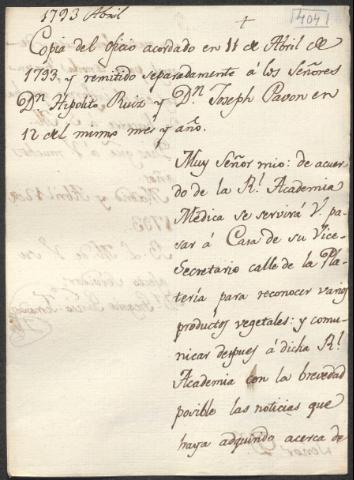 1793 Abril
404
Copia del oficio acordado en 11 de Abril de
1793, y remitido separadamente á los Señores
Dn. Hipolito Ruiz y Dn. Joseph Pavon en
12 del mismo mes y año.
Muy Señor mio: de acuer
do de la Rl. Academia
Medica se servirá V. pa
sar á Casa de su Vice-
Secretario calle de la Pla-
tería para reconocer varios
productos vegetales: y comu-
nicar despues á dicha Rl.
Academia con la brevedad
posible las noticias que
haya adquirido acerca de